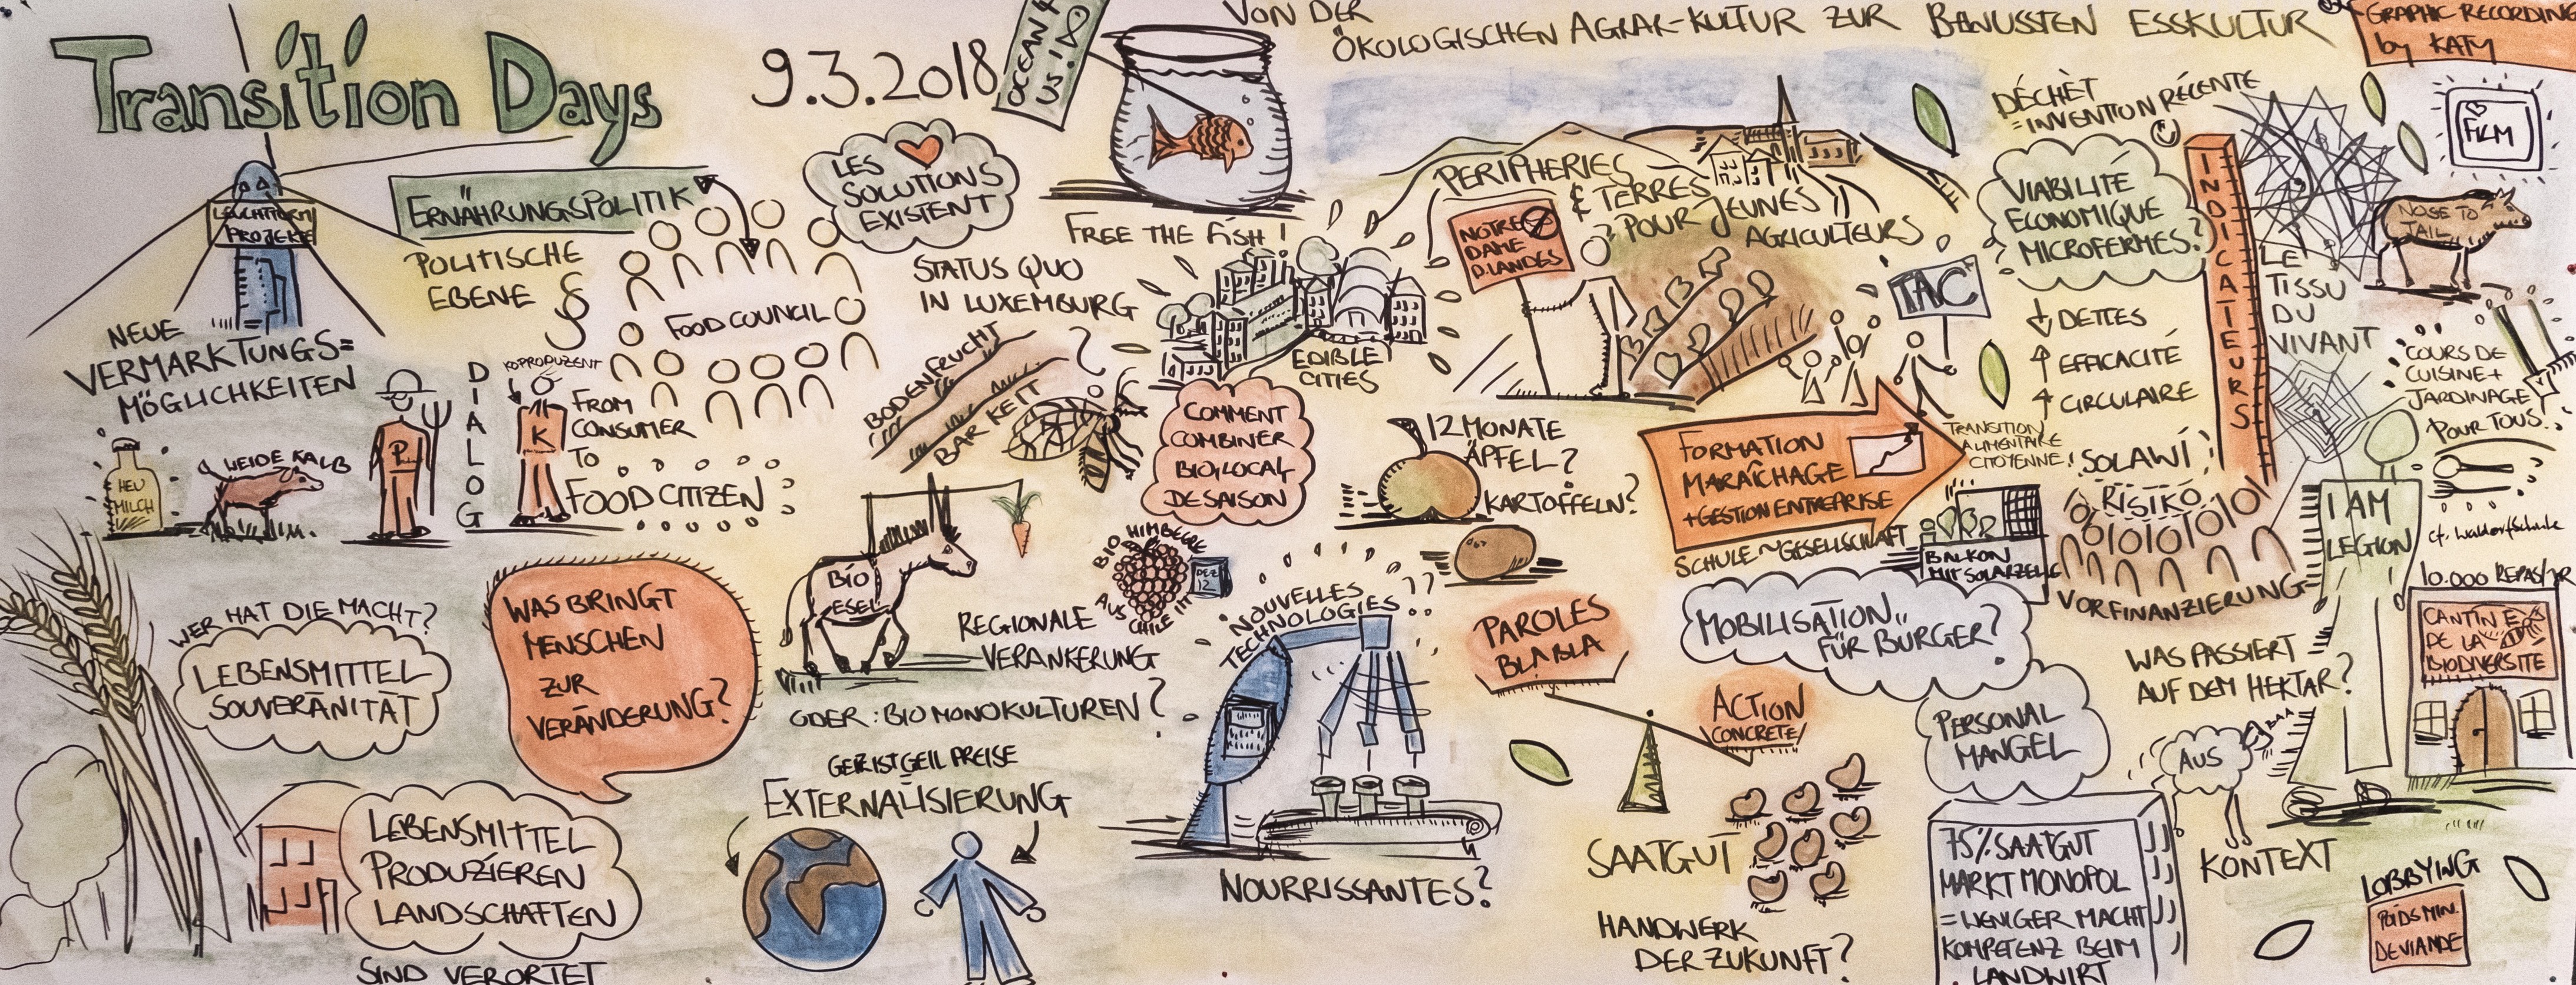 Transition Days
9.3.2018
OCEAN
US!
VON DER
ÖKOLOGISCHEN AGRAR-KULTUR ZUR BEWUSSTEN ESSKULTUR
GRAPHIC RECORDING
by KATY
LEUCHTTURM
PROJEKTE
ERNÄHRUNGSPOLITIK
POLITISCHE
EBENE
§
FOOD COUNCIL
LES
SOLUTIONS
EXISTENT
FREE THE FISH!
STATUS QUO
IN LUXEMBURG
NEUE
VERMARKTUNGS=
MÖGLICHKEITEN
HEU
MILCH
WEIDE KALB
P
DIALOG
KOPRODUZENT
K
FROM
CONSUMER
TO
FOOD CITIZEN
BODENFRUCHT
BARKEIT
?
EDIBLE
CITIES
COMMENT
COMBINER
BIO, LOCAL
DE SAISON
12 MONATE
ÄPFEL?
KARTOFFELN?
PERIPHERIES
& TERRES
POUR JEUNES
AGRICULTEURS
NOTRE
DAME
D.LANDES
TAC
FORMATION
MARAÎCHAGE
+GESTION ENTREPRISE
TRANSITION
ALIMENTAIRE
CITOYENNE!
SCHULE ~ GESELLSCHAFT
BALKON
MIT SOLARZELLE
DÉCHÈT
=INVENTION RÉCENTE
VIABILITÉ
ECONOMIQUE
MICROFERMES?
↓ DETTES
↑ EFFICACITÉ
↑ CIRCULAIRE
INDICATEURS
LE
TISSU
DU
VIVANT
SOLAWI!
RISIKO
VORFINANZIERUNG
FILM
NOSE TO
TAIL
COURS DE
CUISINE +
JARDINAGE
POUR TOUS!
cf. Waldorfschule
I AM
LEGION
CANTINE
DE LA
BIODIVERSITE
WER HAT DIE MACHT?
LEBENSMITTEL
SOUVERÄNITÄT
WAS BRINGT
MENSCHEN
ZUR
VERÄNDERUNG?
BIO
ESEL
BIO HIMBEERE
AUS
CHILE IM
DEZ
12
REGIONALE
VERANKERUNG
ODER: BIO MONOKULTUREN?
GEIZ IST GEIL PREISE
EXTERNALISIERUNG
LEBENSMITTEL
PRODUZIEREN
LANDSCHAFTEN
SIND VERORTET
NOUVELLES
TECHNOLOGIES??
NOURRISSANTES?
PAROLES
BLABLA
ACTION
CONCRETE
MOBILISATION
FÜR BÜRGER?
PERSONAL
MANGEL
SAATGUT
HANDWERK
DER ZUKUNFT?
75% SAATGUT
MARKT MONOPOL
= WENIGER MACHT
KOMPETENZ BEIM
LANDWIRT
WAS PASSIERT
AUF DEM HEKTAR?
AUS
BAA
KONTEXT
LOBBYING
POIDS MIN.
DE VIANDE